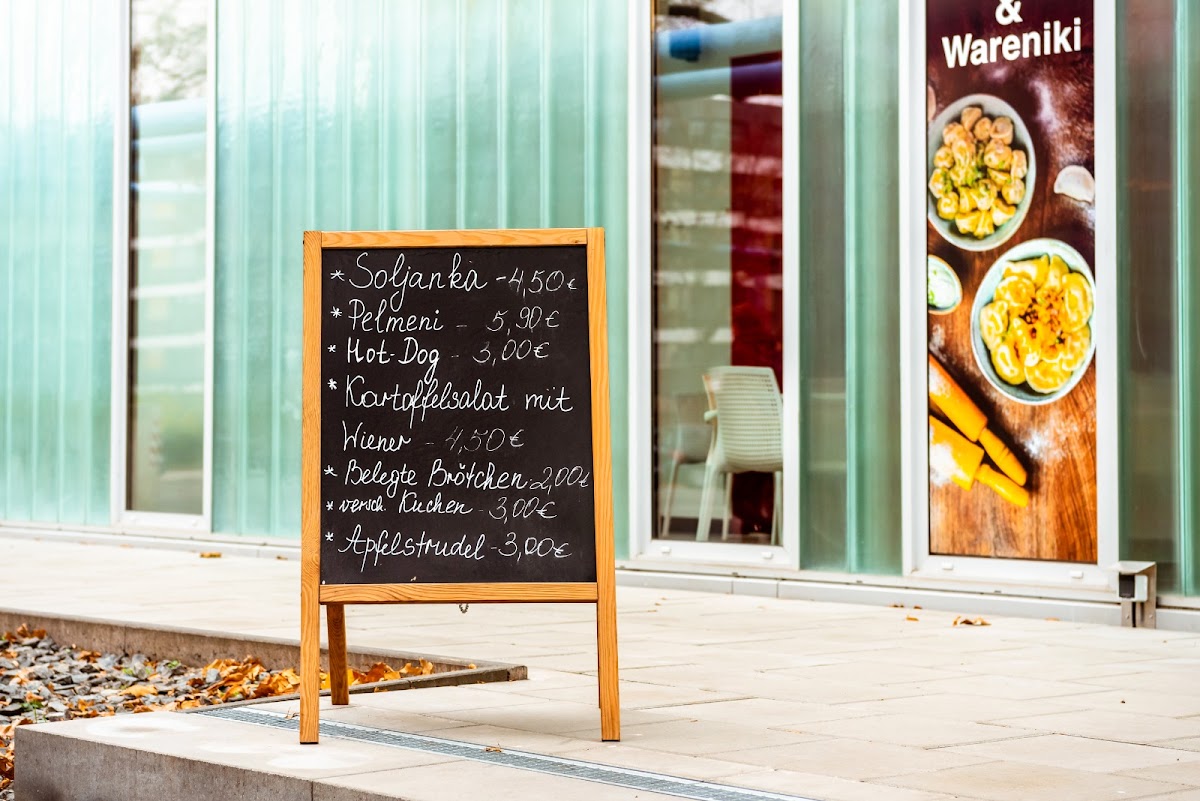 * Soljanka - 4,50€
* Pelmeni - 5,90€
* Hot-Dog - 3,00€
* Kartoffelsalat mit
Wiener - 4,50€
* Belegte Brötchen 2,00€
* versch. Kuchen - 3,00€
* Apfelstrudel - 3,00€
&
Wareniki